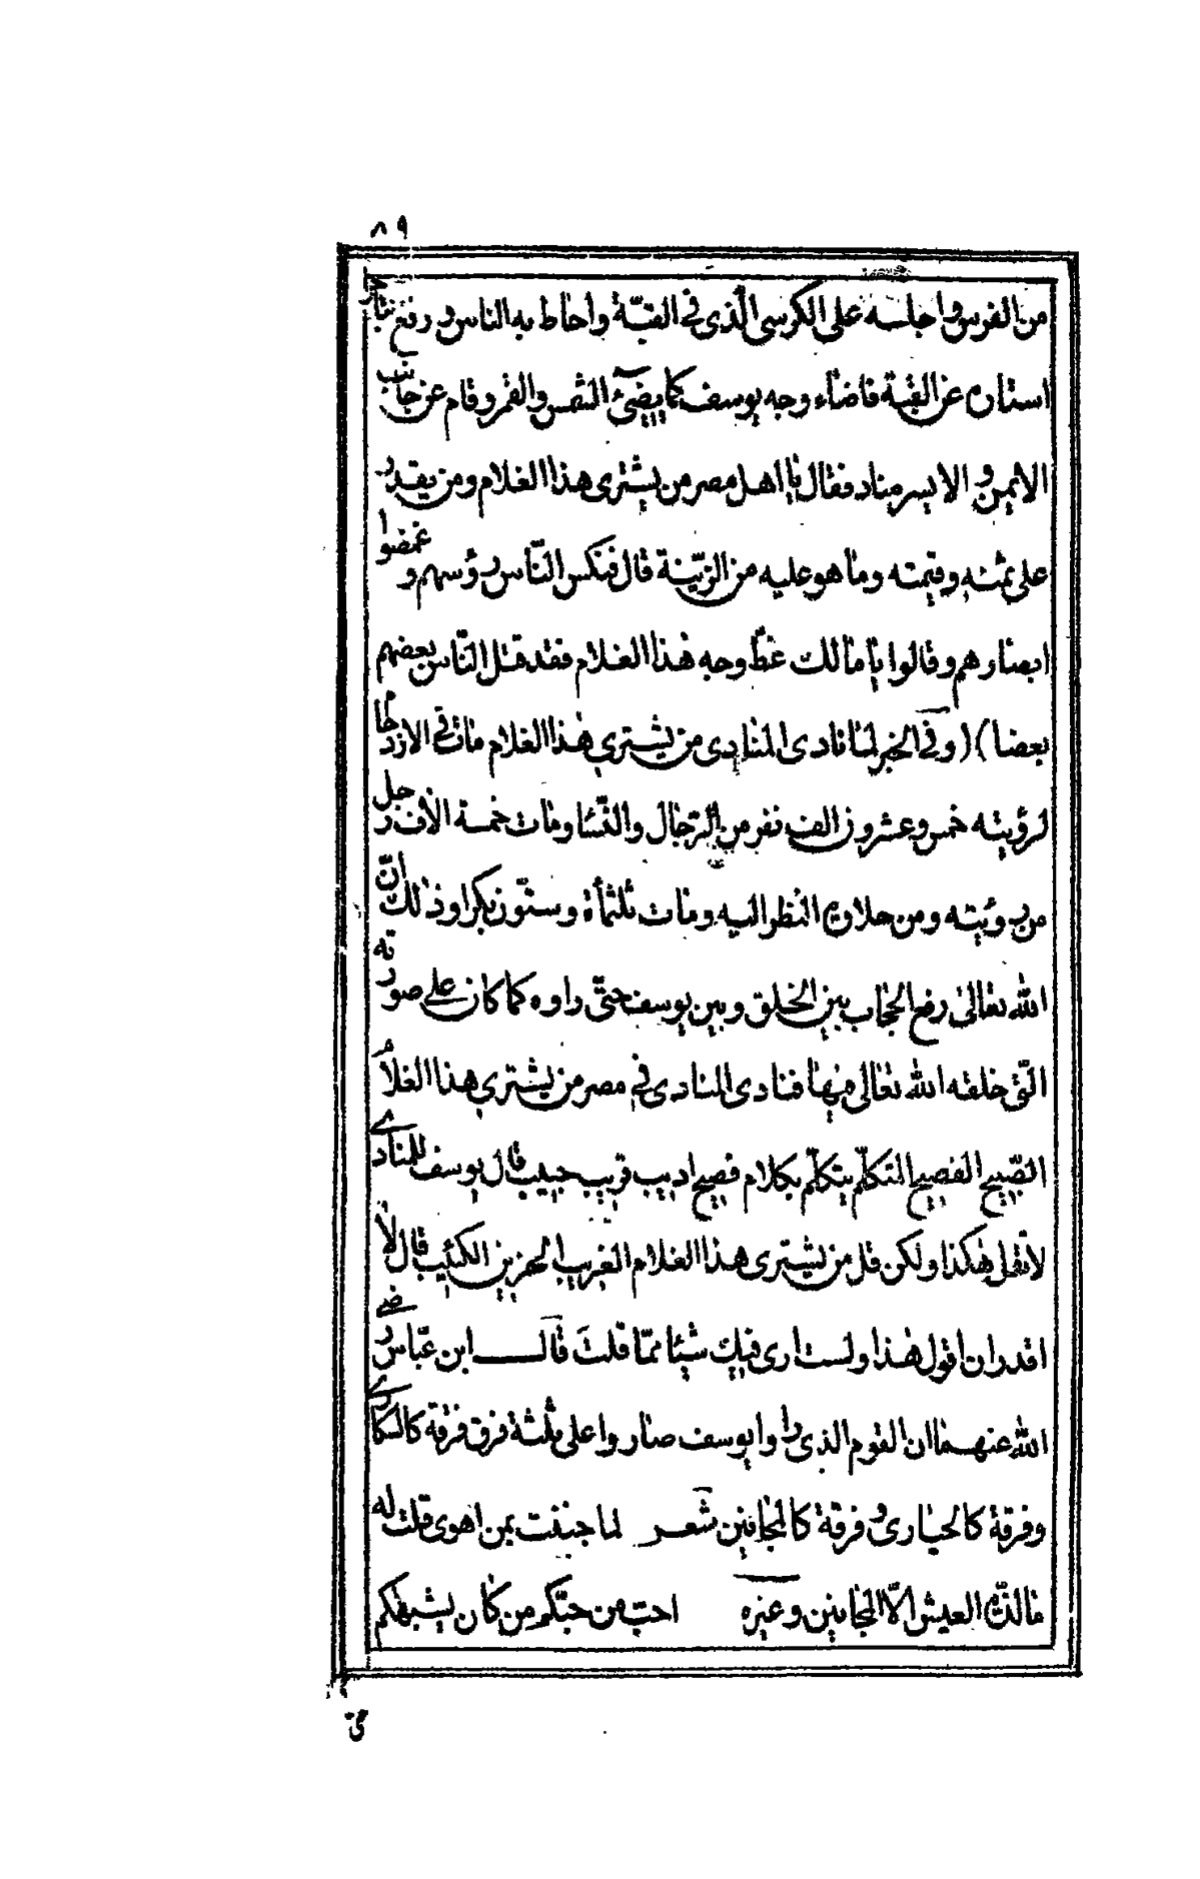 ٨٩
من الفرس واجلسه على الكرسى الّذى فى القبّة واحاط به الناس ورفع
استاره عن القبّة فاضاء وجه يوسف كما يضئ الشمس والقمر وقام عن جانب
الايمن و الايسر مناد فقال يا اهل مصر من يشترى هذا الغلام ومن يقدر
على ثمنه وقيمته وما هو عليه من الزّينة قال فنكس النّاس رؤسهم و غمضوا
ابصارهم وقالوا يا مالك غطّ وجه هذا الغلام فقد قتل النّاس بعضهم
بعضا) (وفى الخبر لما نادى المنادى من يشترى هذا الغلام مات فى الازدحام
لرؤيته خمس وعشرون الف نفر من الرّجال والنّسا ومات خمسة الاف رجل
من رؤيته ومن حلاوة النظر اليه ومات ثلثمأة وستّون بكرا وذلك انّ
الله تعالى رفع الحجاب بين الخلق وبين يوسف حتّى راوه كما كان على صورته
الّتى خلقه الله تعالى فيها فنادى المنادى فى مصر من يشترى هذا الغلام
الصّبيح الفصيح المتكلّم يتكلّم بكلام فصيح اديب قريب حبيب قال يوسف للمنادى
لا تقل هكذا ولكن قل من يشترى هذا الغلام الغريب الحزين الكئيب قال لا
اقدر ان اقول هذا ولست ارى فيك شيئا ممّا قلت قال ابن عبّاس رضى
الله عنهما ان القوم الذى راوا يوسف صاروا على ثلثة فرق فرقة كالسكارى
وفرقة كالحيارى و فرقة كالمجانين شعر لما جننت بمن اهوى قلت له
ما لذّة العيش الّا للمجانين وغيره احبّ من حبّكم من كان يشبهكم